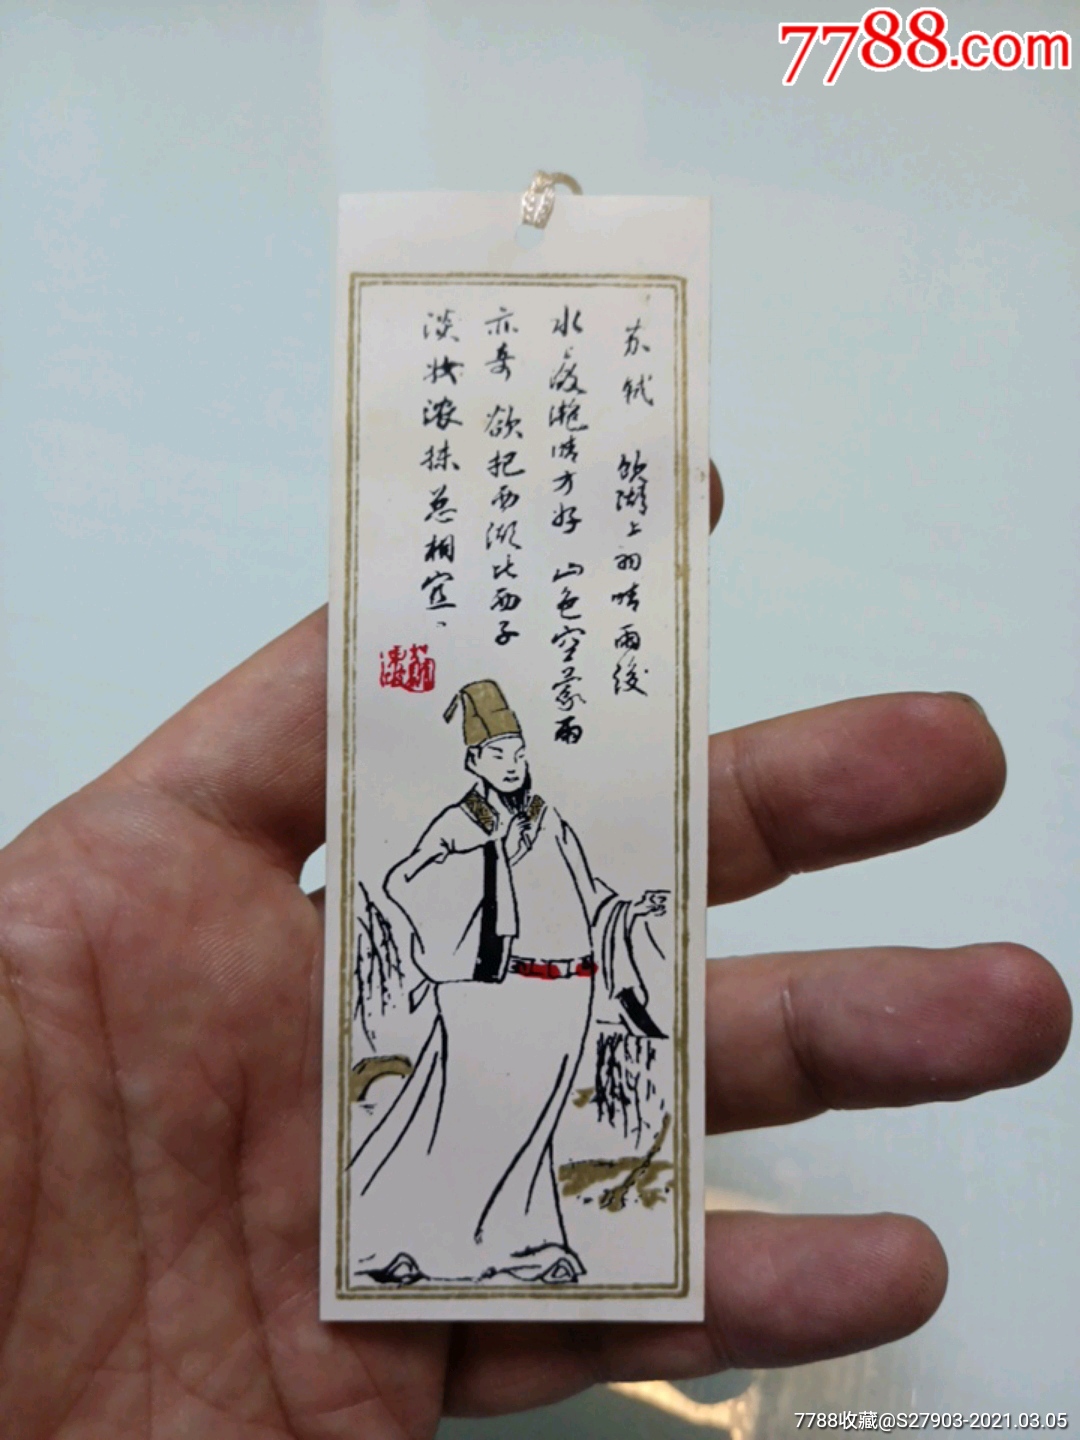 7788.com
苏轼 饮湖上初晴雨後
水潋滟晴方好 山色空蒙雨
亦奇 欲把西湖比西子
淡妆浓抹总相宜、
7788收藏@S27903-2021.03.05